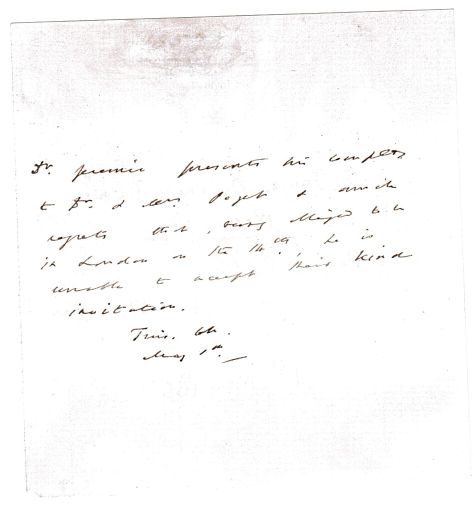 Dr. presents his complts
to Dr. & Mrs. Paget & much
regrets that, being obliged to be
in London on the 14th, he is
unable to accept their kind
invitation.
Trin. Coll.
May 1st.